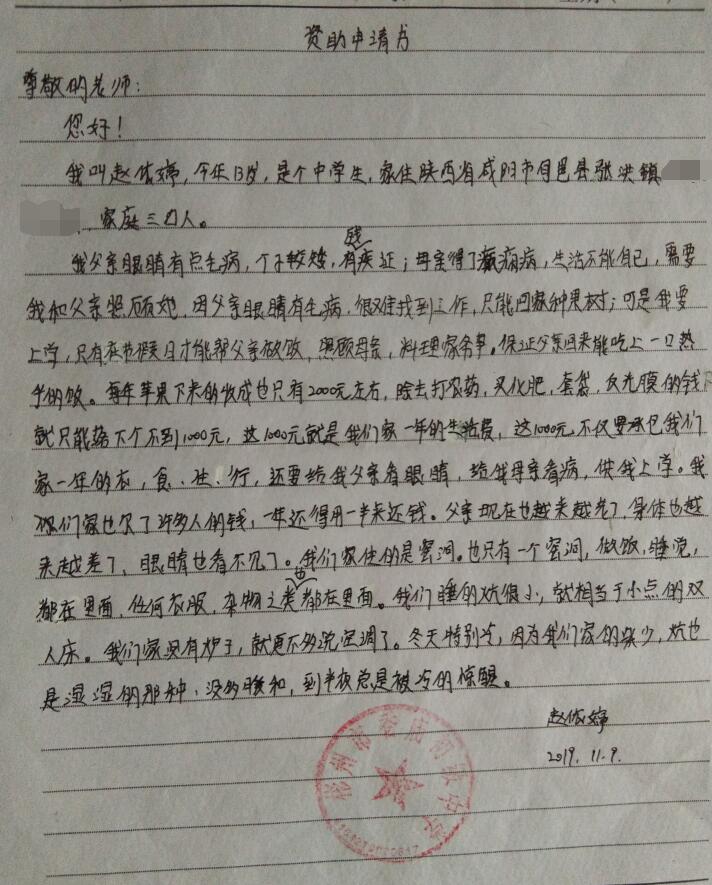 资助申请书
尊敬的老师:
您好!
我叫赵依婷,今年13岁,是个中学生,家住陕西省咸阳市旬邑县张洪镇
家庭三口人。
我父亲眼睛有点毛病,个子较矮,有残疾证;母亲得了癫痫病,生活不能自己,需要
我和父亲照顾她,因父亲眼睛有毛病,很难找到工作,只能回家种果树;可是我要
上学,只有在节假日才能帮父亲做饭,照顾母亲,料理家务事。保证父亲回来能吃上一口热
乎的饭。每年苹果下来的收成也只有2000元左右,除去打农药,又化肥,套袋,反光膜的钱
就只能落下个不到1000元,这1000元就是我们家一年的生活费,这1000元不仅要承包我们
家一年的衣,食、住、行,还要给我父亲看眼睛,给我母亲看病,供我上学。我
们家也欠了许多人的钱,一年还得用一半来还钱。父亲现在也越来越老了,身体也越
来越差了、眼睛也看不见了。我们家住的是窑洞。也只有一个窑洞,做饭,睡觉,
都在里面,任何衣服,杂物之类也都在里面。我们睡的炕很小,就相当于小点的双
人床。我们家没有炉子,就更不多说空调了。冬天特别冷,因为我们家的柴少,炕也
是湿湿的那种、没多暖和,到半夜总是被冷的惊醒。
赵依婷
2019.11.9.